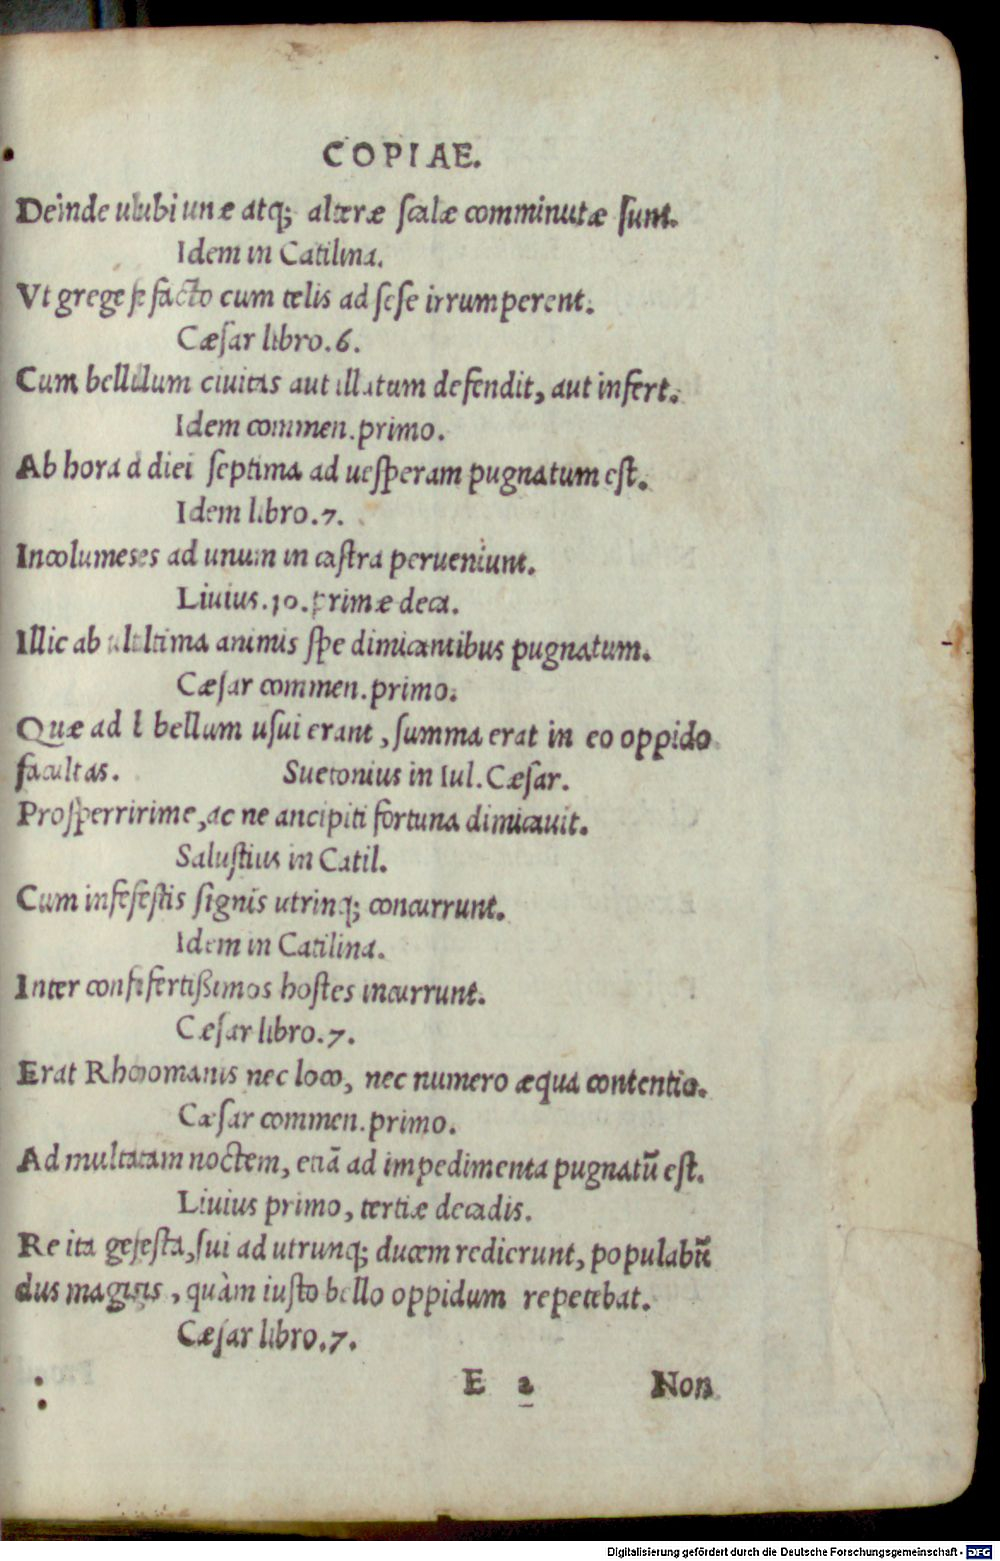 COPIAE.
Deinde ulubi unæ atq; alteræ scalæ comminutæ sunt.
Idem in Catilina.
Vt grege se facto cum telis ad sese irrumperent.
Cæsar libro.6.
Cum bellilum ciuitas aut illatum defendit, aut infert.
Idem commen.primo.
Ab hora a diei septima ad uesperam pugnatum est.
Idem libro.7.
Incolumeses ad unum in castra perueniunt.
Liuius.10.primæ deca.
Illic ab ulultima animis spe dimicantibus pugnatum.
Cæsar commen.primo.
Quæ ad l bellum usui erant, summa erat in eo oppido
facultas. Suetonius in Iul.Cæsar.
Prosperririme, ac ne ancipiti fortuna dimicauit.
Salustius in Catil.
Cum infefestis signis utrinq; concurrunt.
Idem in Catilina.
Inter confifertißimos hostes incurrunt.
Cæsar libro.7.
Erat Rhoomanis nec loco, nec numero æqua contentio.
Cæsar commen.primo.
Ad multatam noctem, etiã ad impedimenta pugnatũ est.
Liuius primo, tertiæ decadis.
Re ita gesesta, sui ad utrunq; ducem redierunt, populabũ
dus magisis, quàm iusto bello oppidum repetebat.
Cæsar libro.7.
E 2 Non
Digitalisierung gefördert durch die Deutsche Forschungsgemeinschaft - DFG